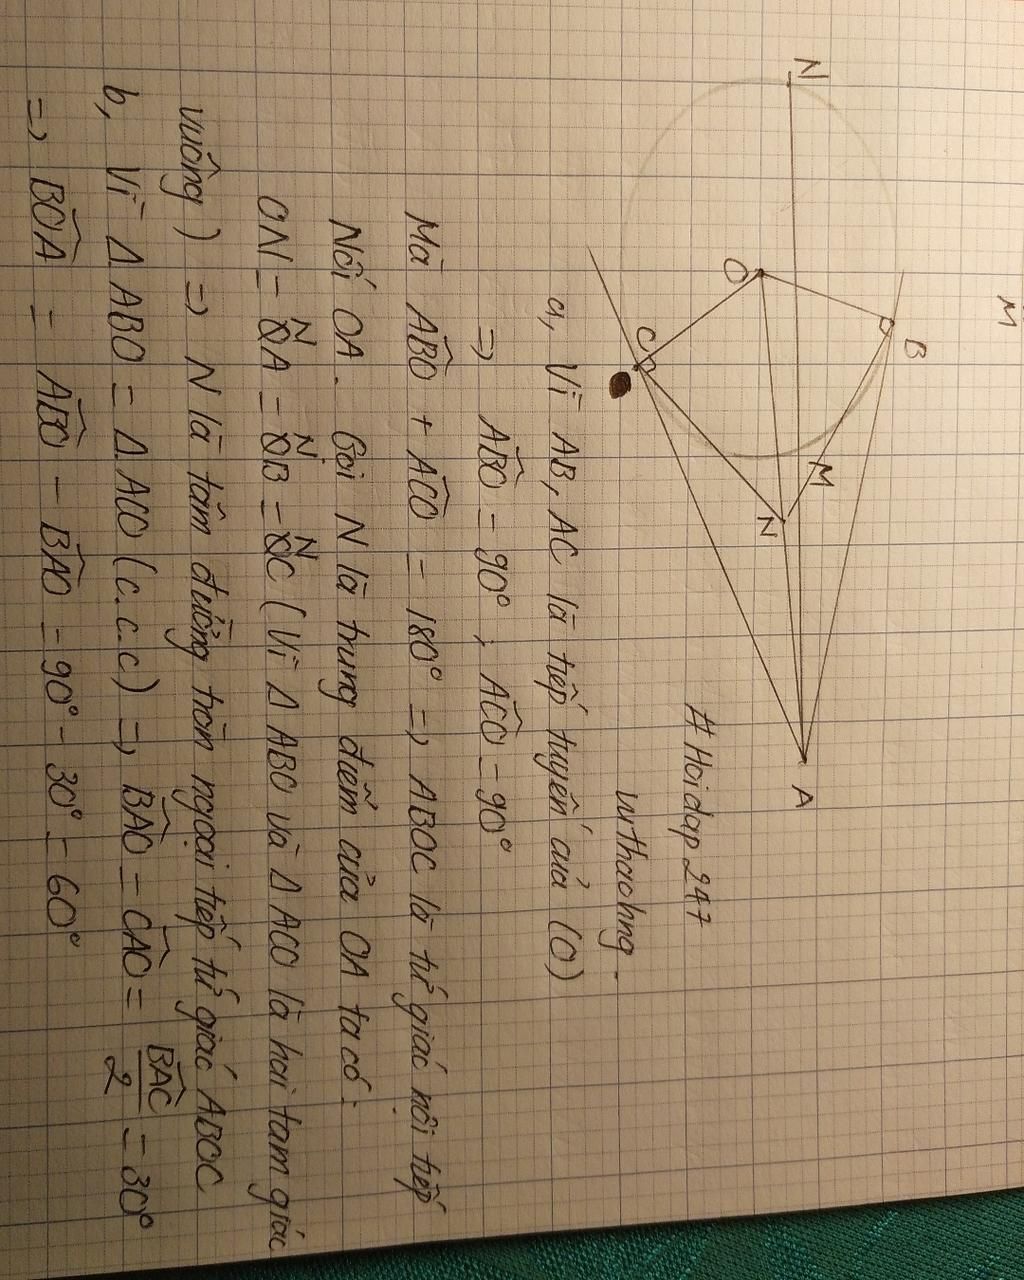 M
N
B
O
C
M
N
A
# Hoidap 247
wthaohng -
a, Vì AB, AC là tiếp tuyến của (O)
=> ABO = 90° ; ACO = 90°
Mà ABO + ACO = 180° => ABOC là tứ giác nội tiếp
Nối OA. Gọi N là trung điểm của OA ta có :
ON = NA = NB = NC (Vì Δ ABO và Δ ACO là hai tam giác
vuông ) => N là tâm đường tròn ngoại tiếp tứ giác ABOC
b, Vì Δ ABO = Δ ACO (c.c.c) => BAO = CAO = BAC/2 = 30°
=> BOA = ABO - BAO = 90° - 30° = 60°